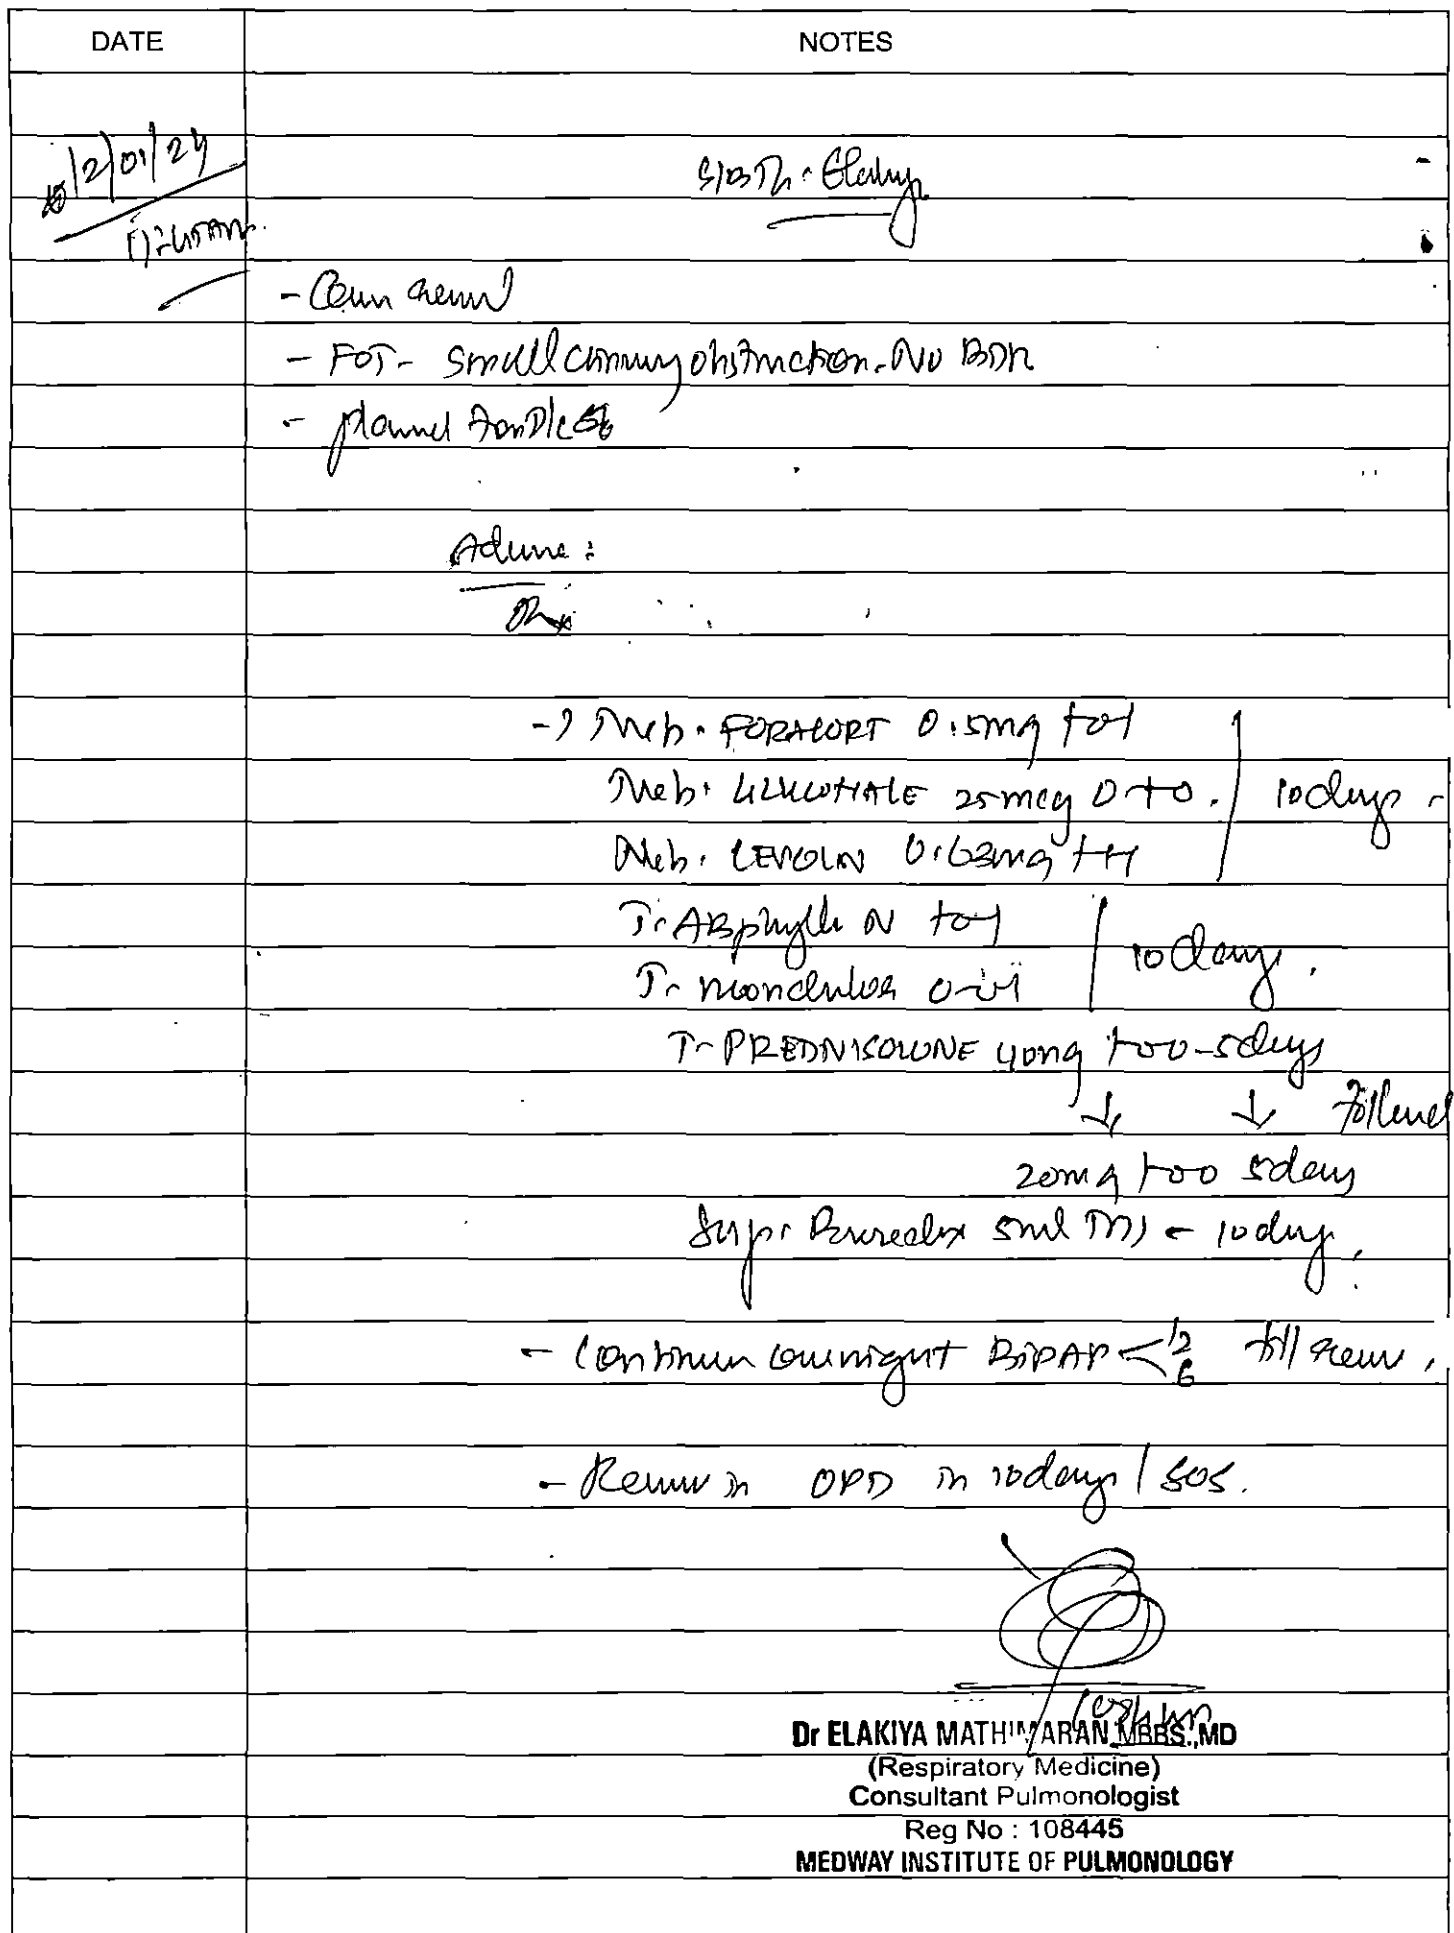 DATE NOTES
12/01/24
S/B Dr.
11:45AM
- FOT - Small airway obstruction. No BDR
- planned for D/c
Advice:
Rx
-> Neb. FORACORT 0.5mg 1-0-1
Neb. GLYCOHALE 25mcg 0-1-0. 10 days
Neb. LEVOLIN 0.63mg 1-1-1
T. ABphyllin N 1-0-1 10 days.
T. 0-0-1
T. PREDNISOLONE 40mg 1-0-0 - 5days
↓ ↓ followed
20mg 1-0-0 5days
Syp. 5ml TDS - 10 days.
- Continue overnight BIPAP < 12 6 till review.
- Review in OPD in 10 days / SOS.
Dr ELAKIYA MATHIMARAN MBBS.,MD
(Respiratory Medicine)
Consultant Pulmonologist
Reg No : 108445
MEDWAY INSTITUTE OF PULMONOLOGY